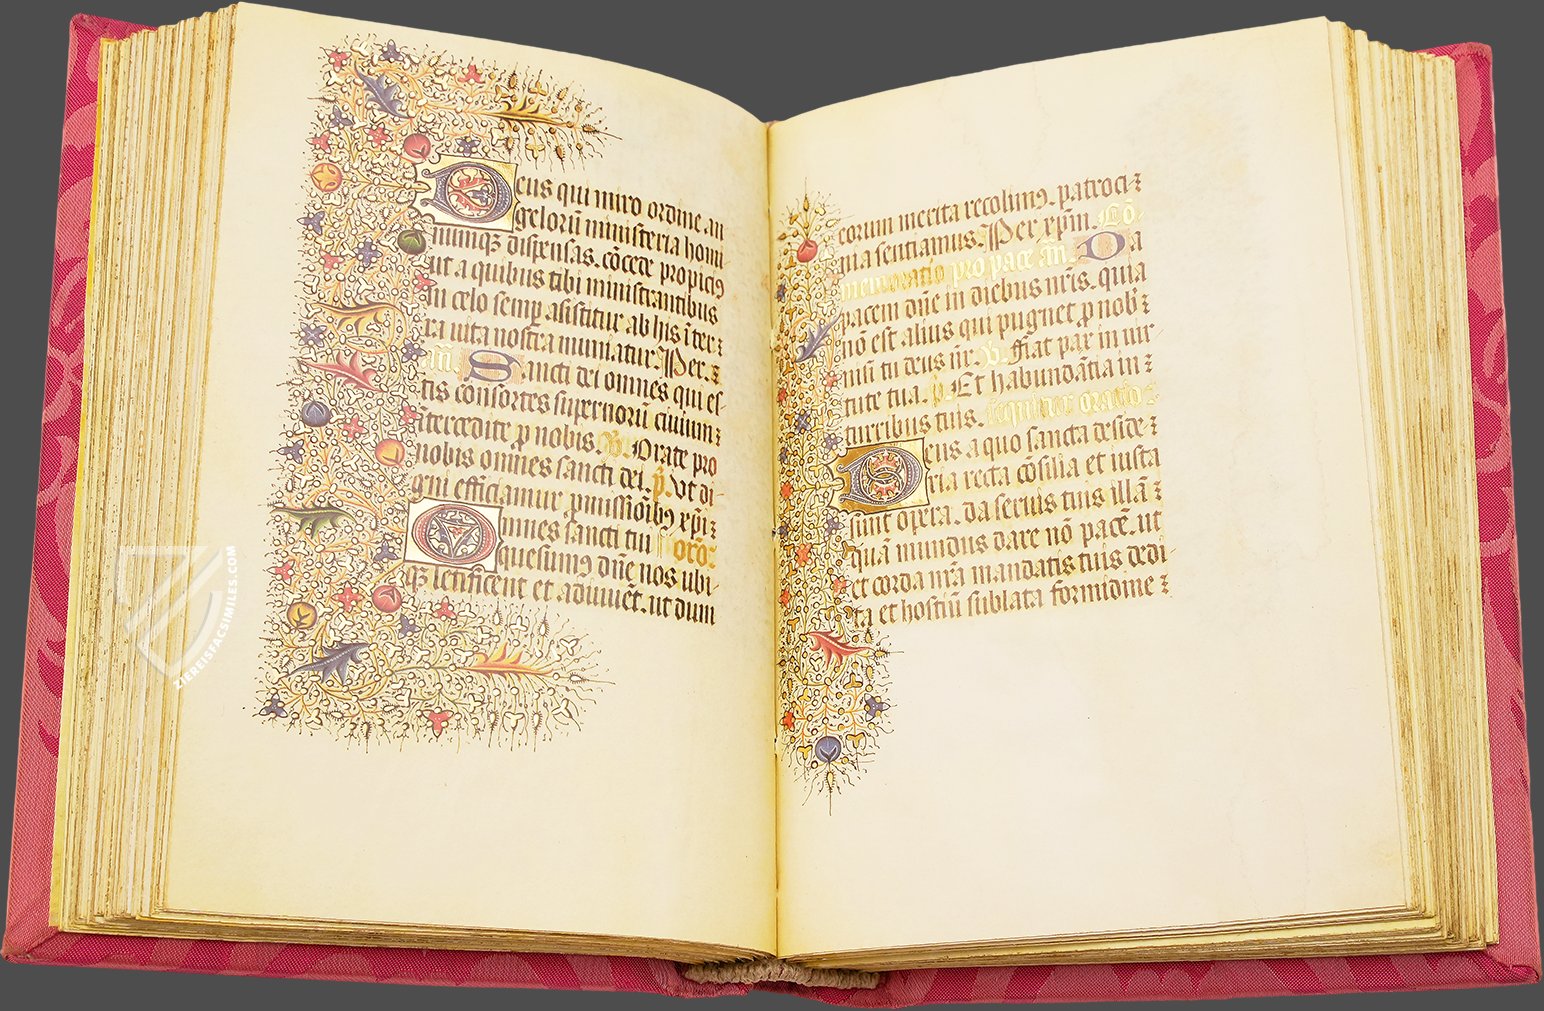 Deus qui miro ordine an
gelorū ministeria homi
numqꝫ dispensas. cōcede propiciꝯ
ut a quibus tibi ministrantibus
in celo semp̱ assistitur ab his ī ter
ra uita nostra muniatur. Per.
añ. Sancti dei omnes qui es
tis consortes supernorū ciuium
ītercedite p̱ nobis. ℣. Orate pro
nobis omnes sancti dei. ℟. Ut di-
gni efficiamur p̱missiōibꝯ xp̄i
Omnes sancti tui orō.
quesumꝯ dn̄e nos ubi-
qꝫ letificent et adiuuēt. ut dum
eorum merita recolimꝯ. patroci-
nia sentiamus. Per xp̄m. Cō-
memoratio pro pace añ. Da
pacem dn̄e in diebus nr̄is. quia
nō est alius qui pugnet p̱ nob̄
nisi tu deus nr̄. ℣. Fiat pax in uir
tute tua. ℟. Et habundātia in
turribus tuis. sequitur oratio
Deus a quo sancta deside
ria recta cōsilia et iusta
sunt opera. da seruis tuis illā
quā mundus dare nō pacē. ut
et corda nr̄a mandatis tuis dedi-
ta et hostiū sublata formidine
ZIEREISFACSIMILES.COM